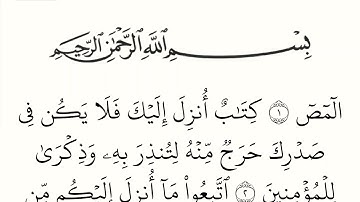 بِسْمِ ٱللَّهِ ٱلرَّحْمَٰنِ ٱلرَّحِيمِ
الٓمٓصٓ ١ كِتَٰبٌ أُنزِلَ إِلَيْكَ فَلَا يَكُن فِى
صَدْرِكَ حَرَجٌ مِّنْهُ لِتُنذِرَ بِهِۦ وَذِكْرَىٰ
لِلْمُؤْمِنِينَ ٢ ٱتَّبِعُوا۟ مَآ أُنزِلَ إِلَيْكُم مِّن